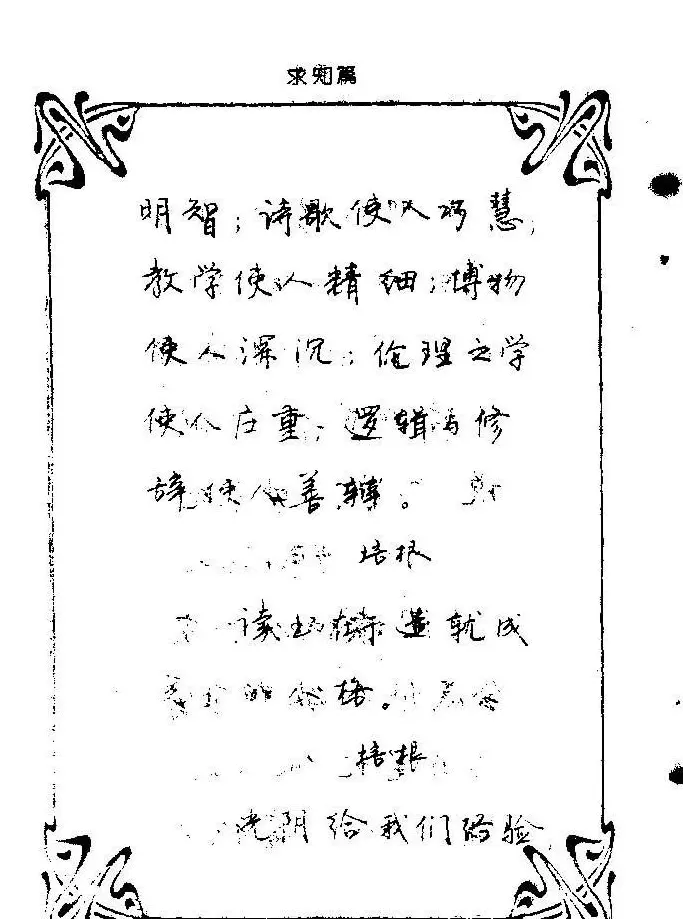 求知篇
明智；诗歌使人巧慧；
数学使人精细；博物
使人深沉；伦理之学
使人庄重；逻辑与修
辞使人善辩。
培根
读书在于造就成
的人格。
培根
光阴给我们经验，